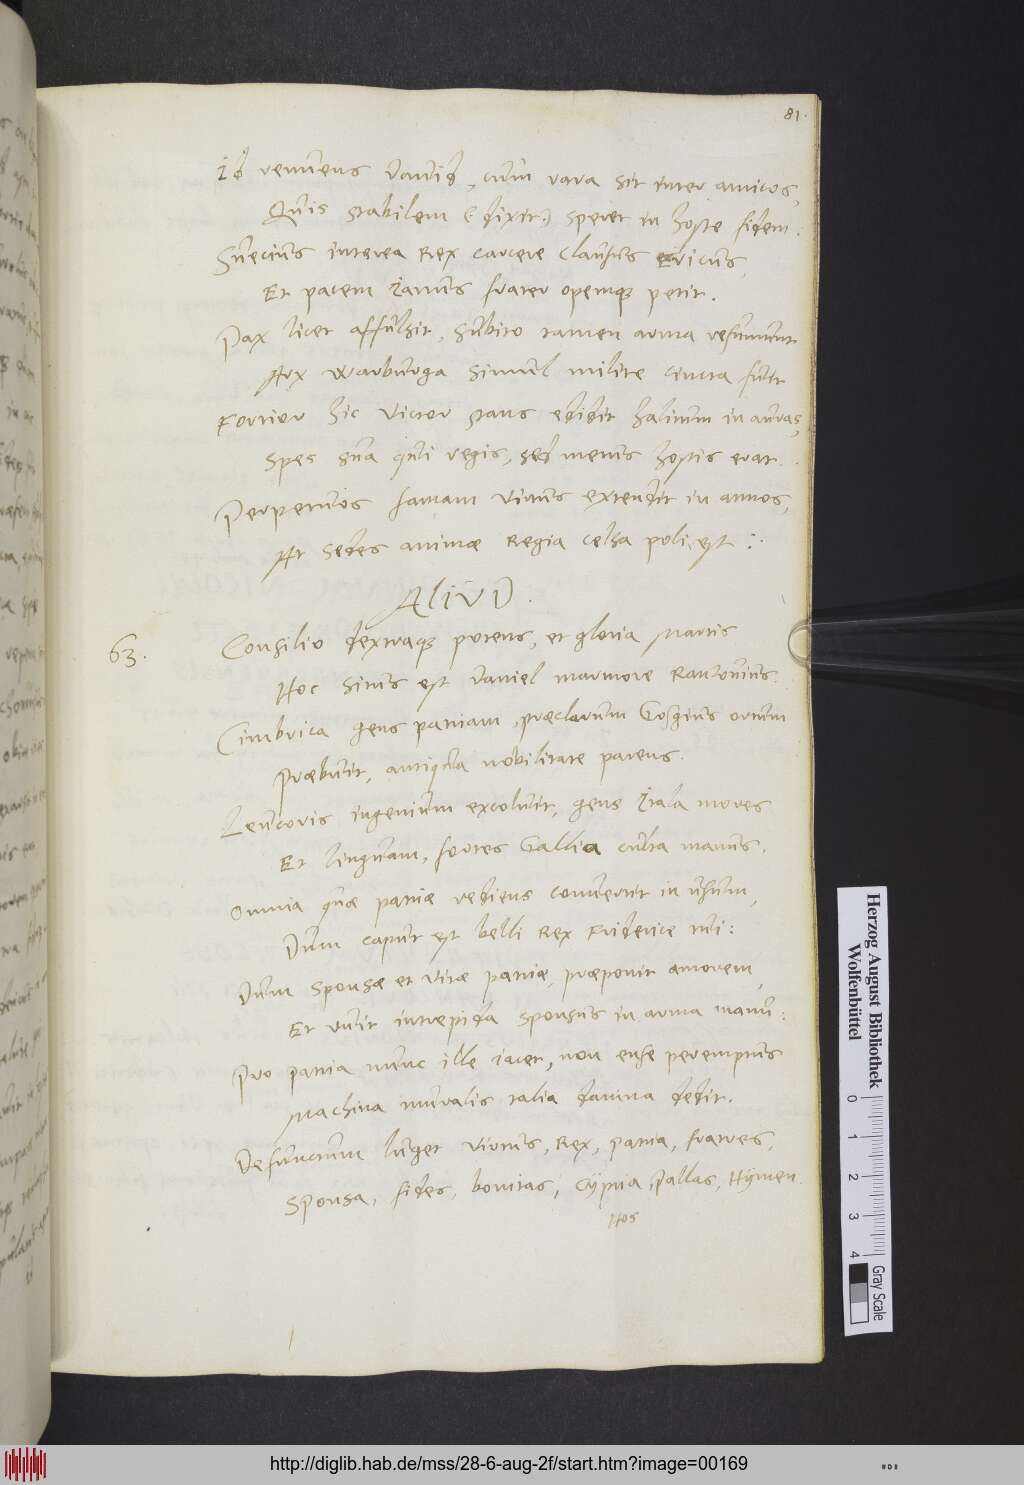 81.
Id renuens Dauid, cum rara sit inter amicos,
Quis stabilem (: dixit :) speret in hoste fidem.
Suecius interea Rex carcere clausus Ericus,
Et pacem Janus frater opemque petit.
Pax licet affulsit, subito tamen arma resumunt
Arx Warburga simul milite cincta fuit
Fortior hic victor stans edidit halitum in auras,
Spes sua qui regis, sed metus hostis erat.
Perpetuos famam virtus extendit in annos,
At sedes animæ Regia celsa poli est :·
ALIUD.
63.
Consilio dextraque potens, et gloria Martis
Hoc situs est Daniel marmore Rantouius.
Cimbrica gens patriam, præclarum Gosgius ortum
Præbuit, antiqua nobilitate parens.
Leucoris ingenium excoluit, gens Itala mores
Et linguam, fortes Gallia culta manus.
Omnia quæ patriæ rediens conuertit in usum,
Dum caput est belli Rex Friderice tui:
Dum sponsæ et vitæ patriæ, præponit amorem,
Et ruit intrepida sponsus in arma manu:
Pro patria nunc ille iacet, non ense peremptus
Machina muralis talia damna dedit.
Defunctum luget virtus, Rex, patria, fratres,
Sponsa, fides, bonitas, Cypria, Pallas, Hymen.
Hos
Herzog August Bibliothek
Wolfenbüttel
0 1 2 3 4
Gray Scale
http://diglib.hab.de/mss/28-6-aug-2f/start.htm?image=00169